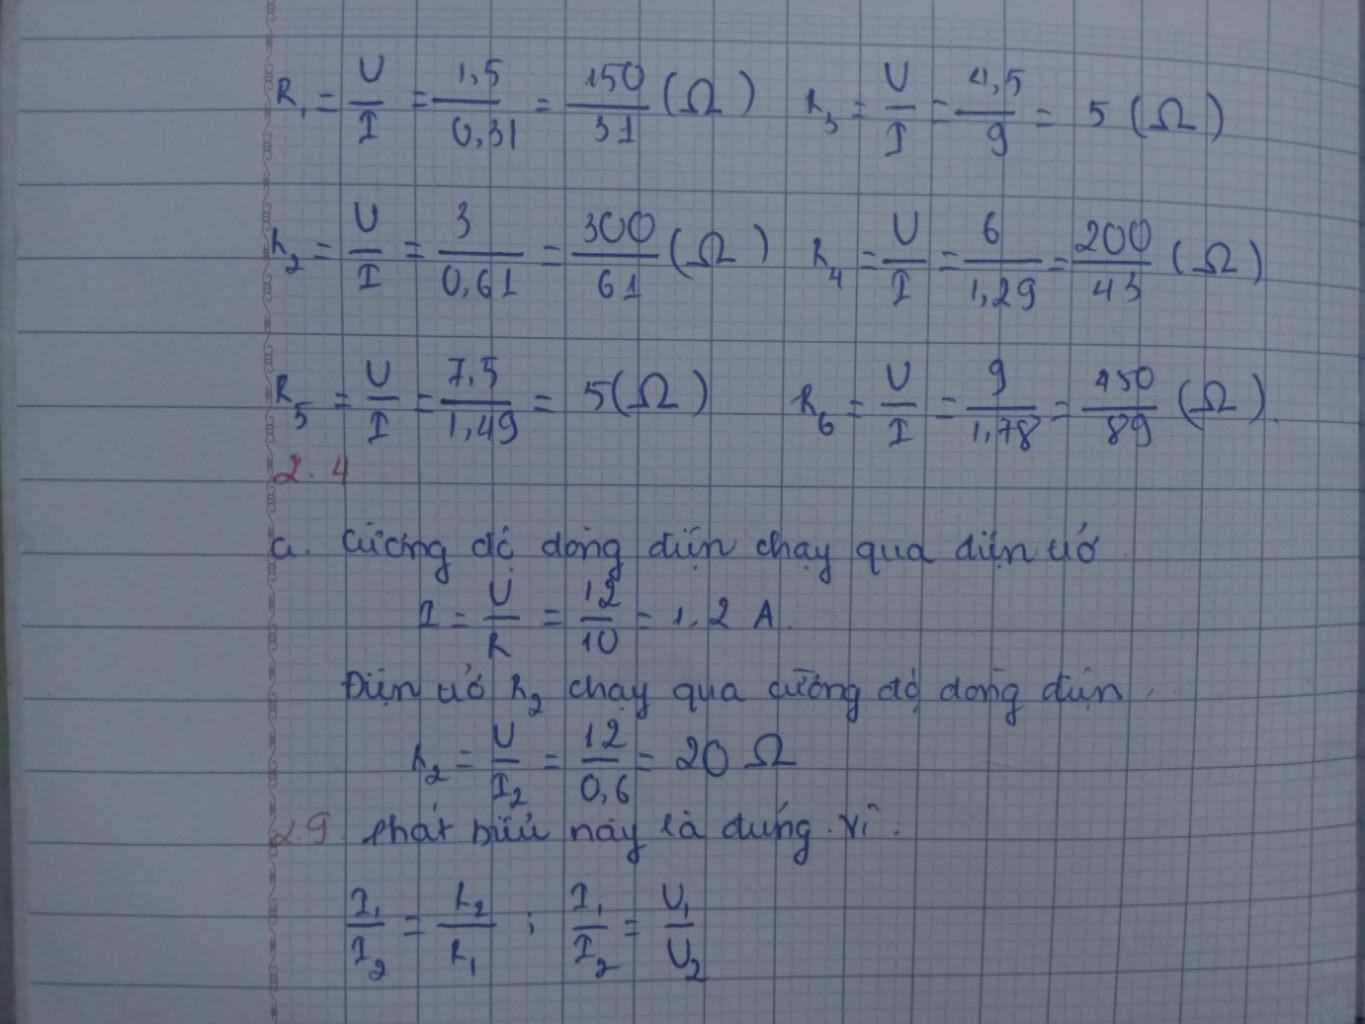 R₁ = U/I = 1,5/0,31 = 150/31 (Ω) R₃ = U/I = 4,5/9 = 5 (Ω)
R₂ = U/I = 3/0,61 = 300/61 (Ω) R₄ = U/I = 6/1,29 = 200/43 (Ω)
R₅ = U/I = 7,5/1,49 = 5 (Ω) R₆ = U/I = 9/1,78 = 450/89 (Ω).
2.4
a. Cường độ dòng điện chạy qua điện trở
I = U/R = 12/10 = 1,2 A.
Điện trở R₂ chạy qua cường độ dòng điện.
R₂ = U/I₂ = 12/0,6 = 20 Ω
2.9 Phát biểu này là đúng. Vì:
I₁/I₂ = R₂/R₁ ; I₁/I₂ = U₁/U₂